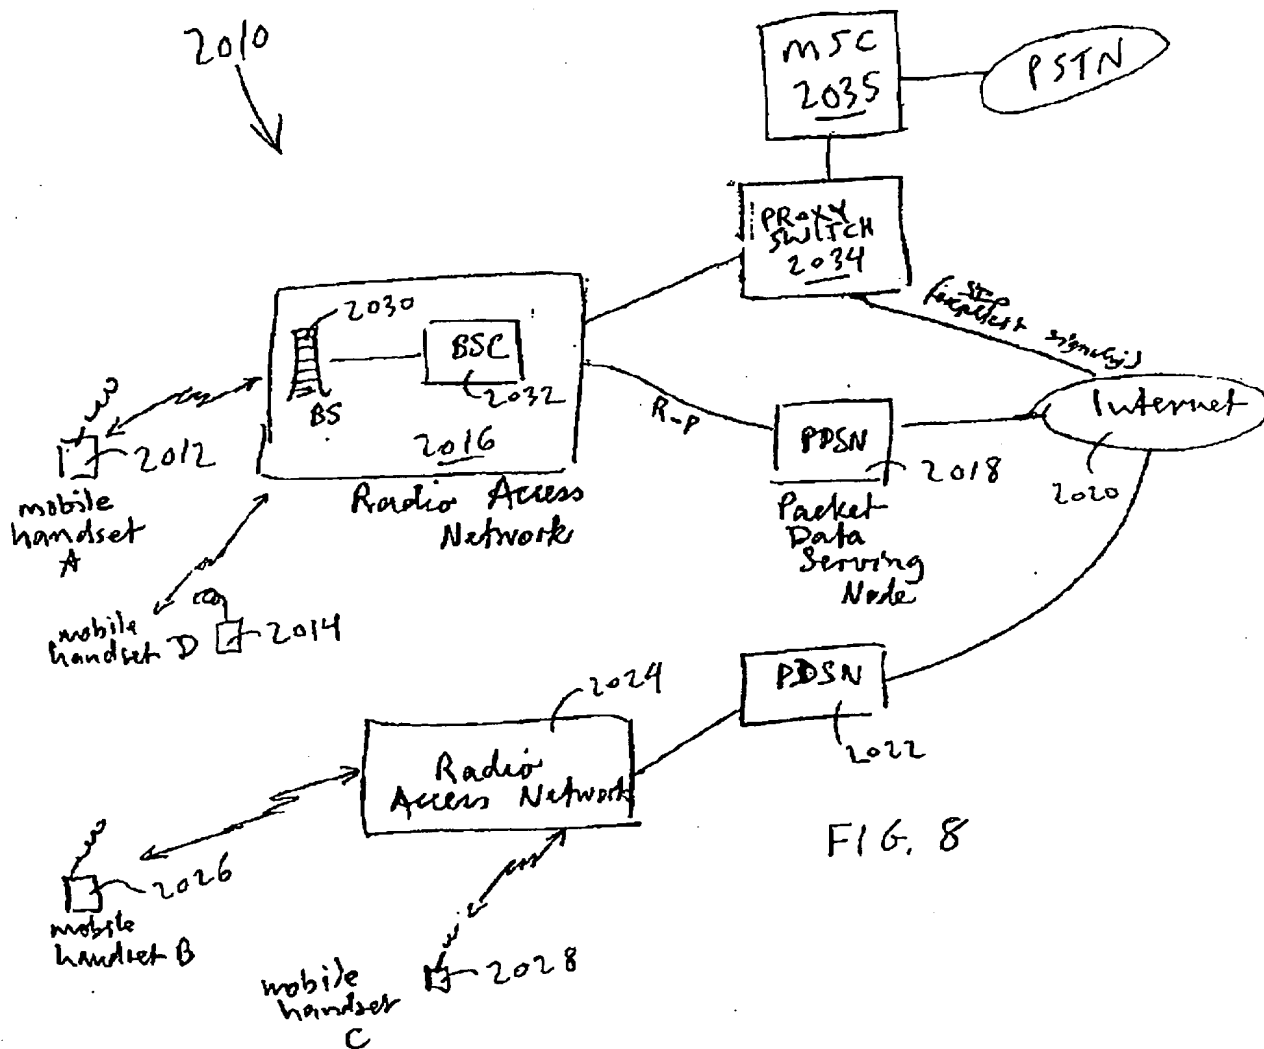 2010
MSC
2035
PSTN
PROXY
SWITCH
2034
SIP
signaling
2030
BSC
2032
BS
2016
Radio Access
Network
2012
mobile
handset
A
mobile
handset D
2014
R-P
PDSN
2018
Packet
Data
Serving
Node
Internet
2020
PDSN
2022
2024
Radio
Access Network
2026
mobile
handset B
2028
mobile
handset
C
FIG. 8